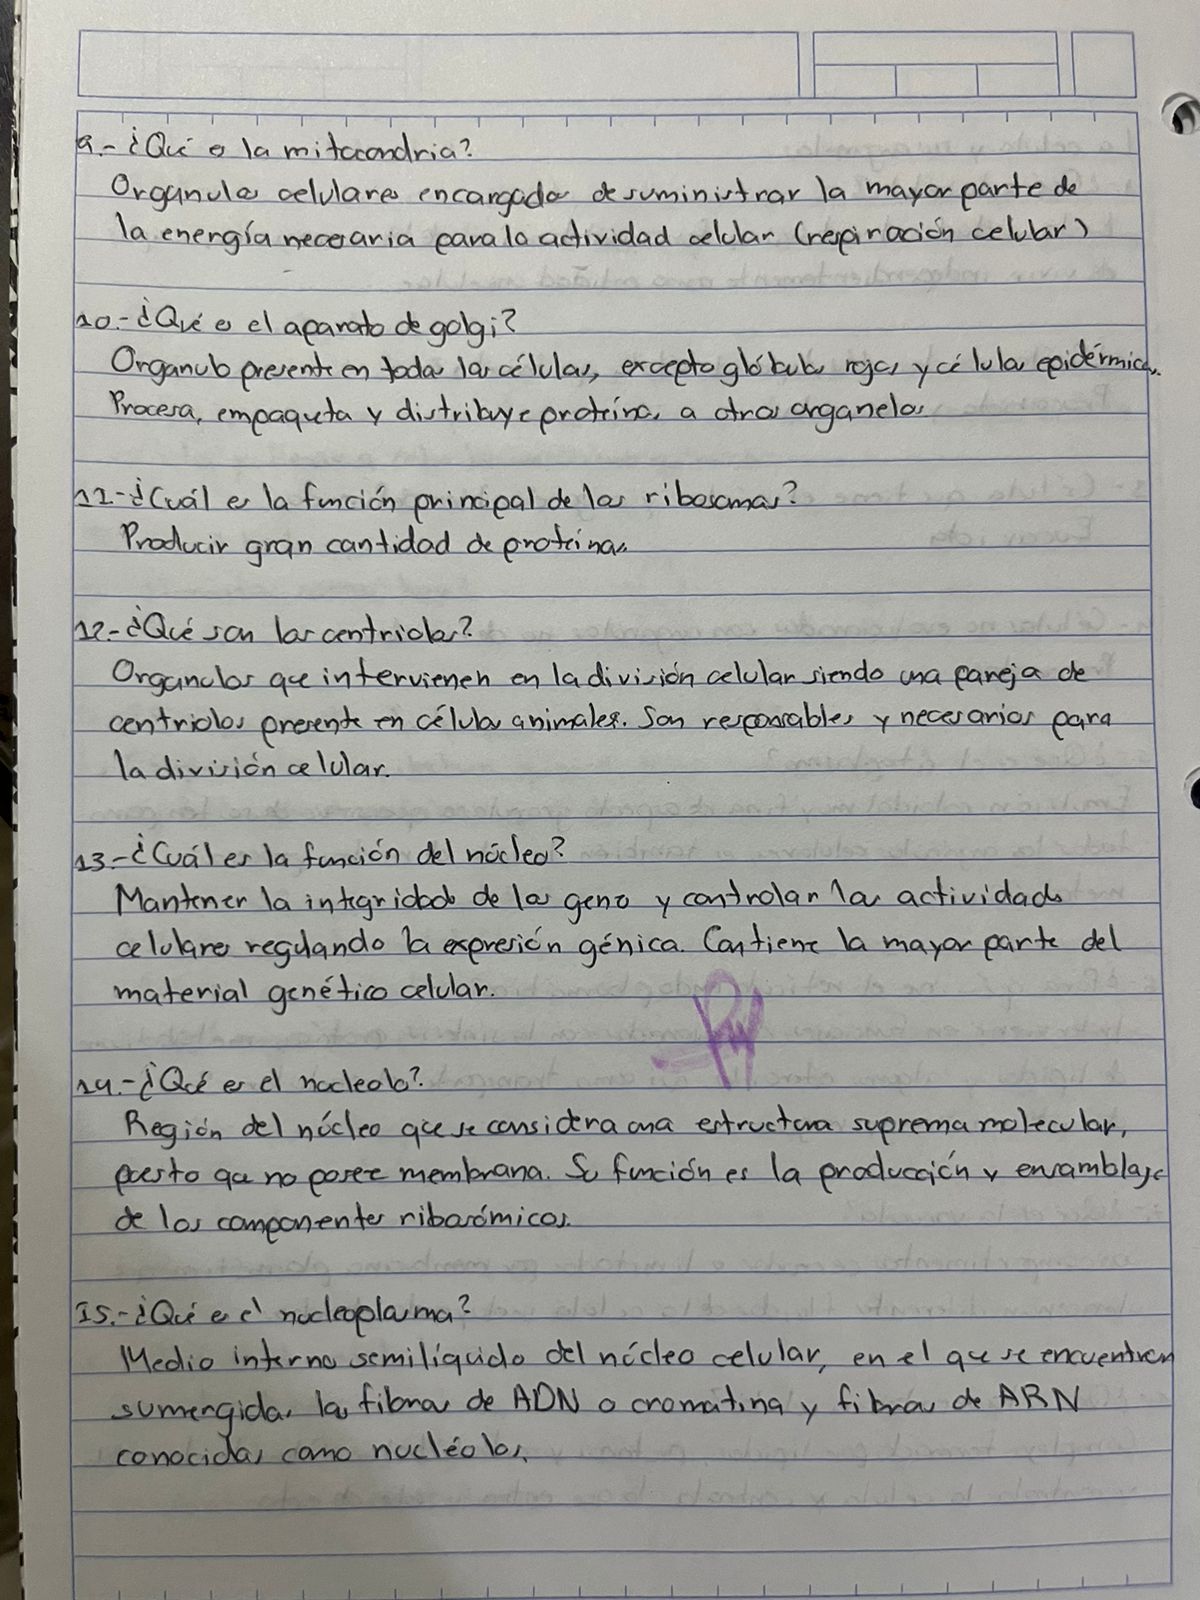 9.- ¿Qué es la mitocondria?
Organulos celulares encargados de suministrar la mayor parte de
la energía necesaria para la actividad celular (respiración celular)
10.- ¿Qué es el aparato de golgi?
Organulo presente en todas las células, excepto glóbulos rojos y células epidérmicas.
Procesa, empaqueta y distribuye proteínas a otros organelos
11.- ¿Cuál es la función principal de los ribosomas?
Producir gran cantidad de proteínas.
12.- ¿Qué son los centriolos?
Organulos que intervienen en la división celular siendo una pareja de
centriolos presente en células animales. Son responsables y necesarios para
la división celular.
13.- ¿Cuál es la función del núcleo?
Mantener la integridad de los genes y controlar las actividades
celulares regulando la expresión génica. Contiene la mayor parte del
material genético celular.
14.- ¿Qué es el nucleolo?
Región del núcleo que se considera una estructura suprema molecular,
puesto que no posee membrana. Su función es la producción y ensamblaje
de los componentes ribosómicos.
15.- ¿Qué es el nucleoplasma?
Medio interno semilíquido del núcleo celular, en el que se encuentran
sumergidas las fibras de ADN o cromatina y fibras de ARN
conocidas como nucléolos.